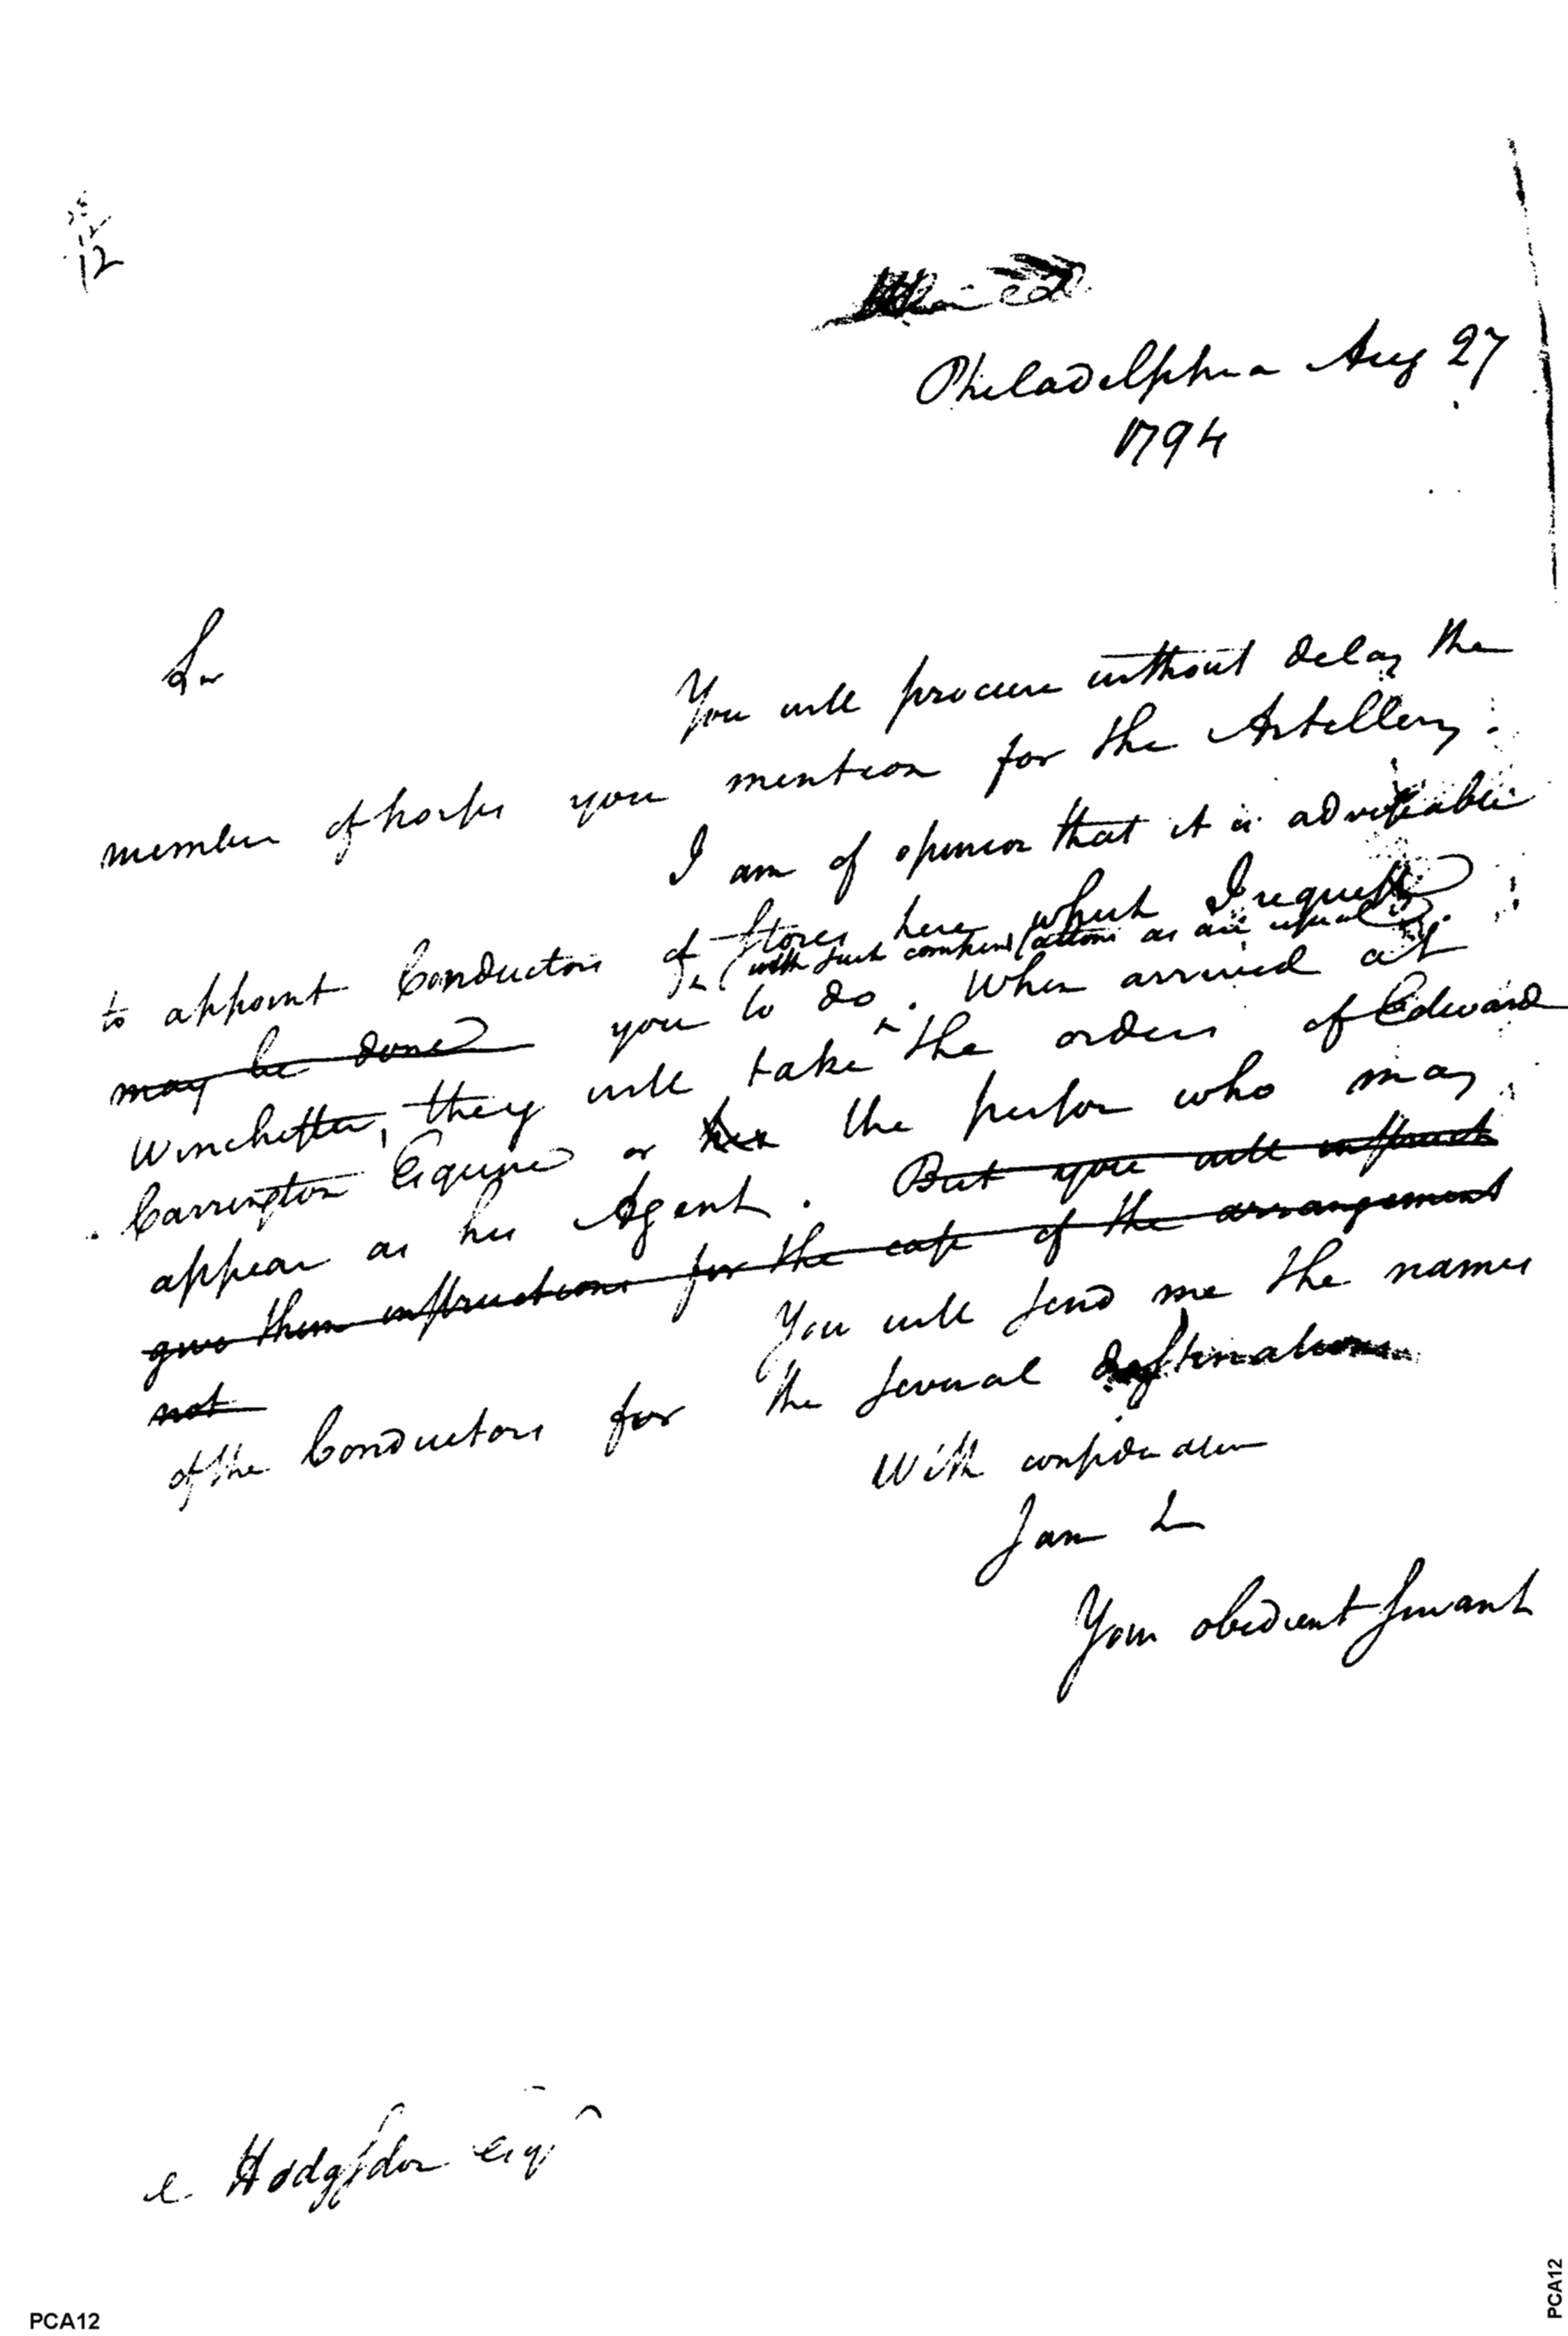 12
Philadelphia Aug 27
1794
Sir
You will procure without delay the
number of horses you mention for the Artillery.
I am of opinion that it is adviseable
to appoint Conductors of Stores here which I request
(with such compensations as are usual)
may be done you to do. When arrived at
Winchester, they will take the orders of Edward
Carrington Esquire or the person who may
appear as his Agent. But you will instruct
give them instructions for the case of the arrangement
not
You will send me the names
of the Conductors for the several destinations
With consideration
I am Sir
Your obedient servant
Hodgsdon Esqr
PCA12
PCA12